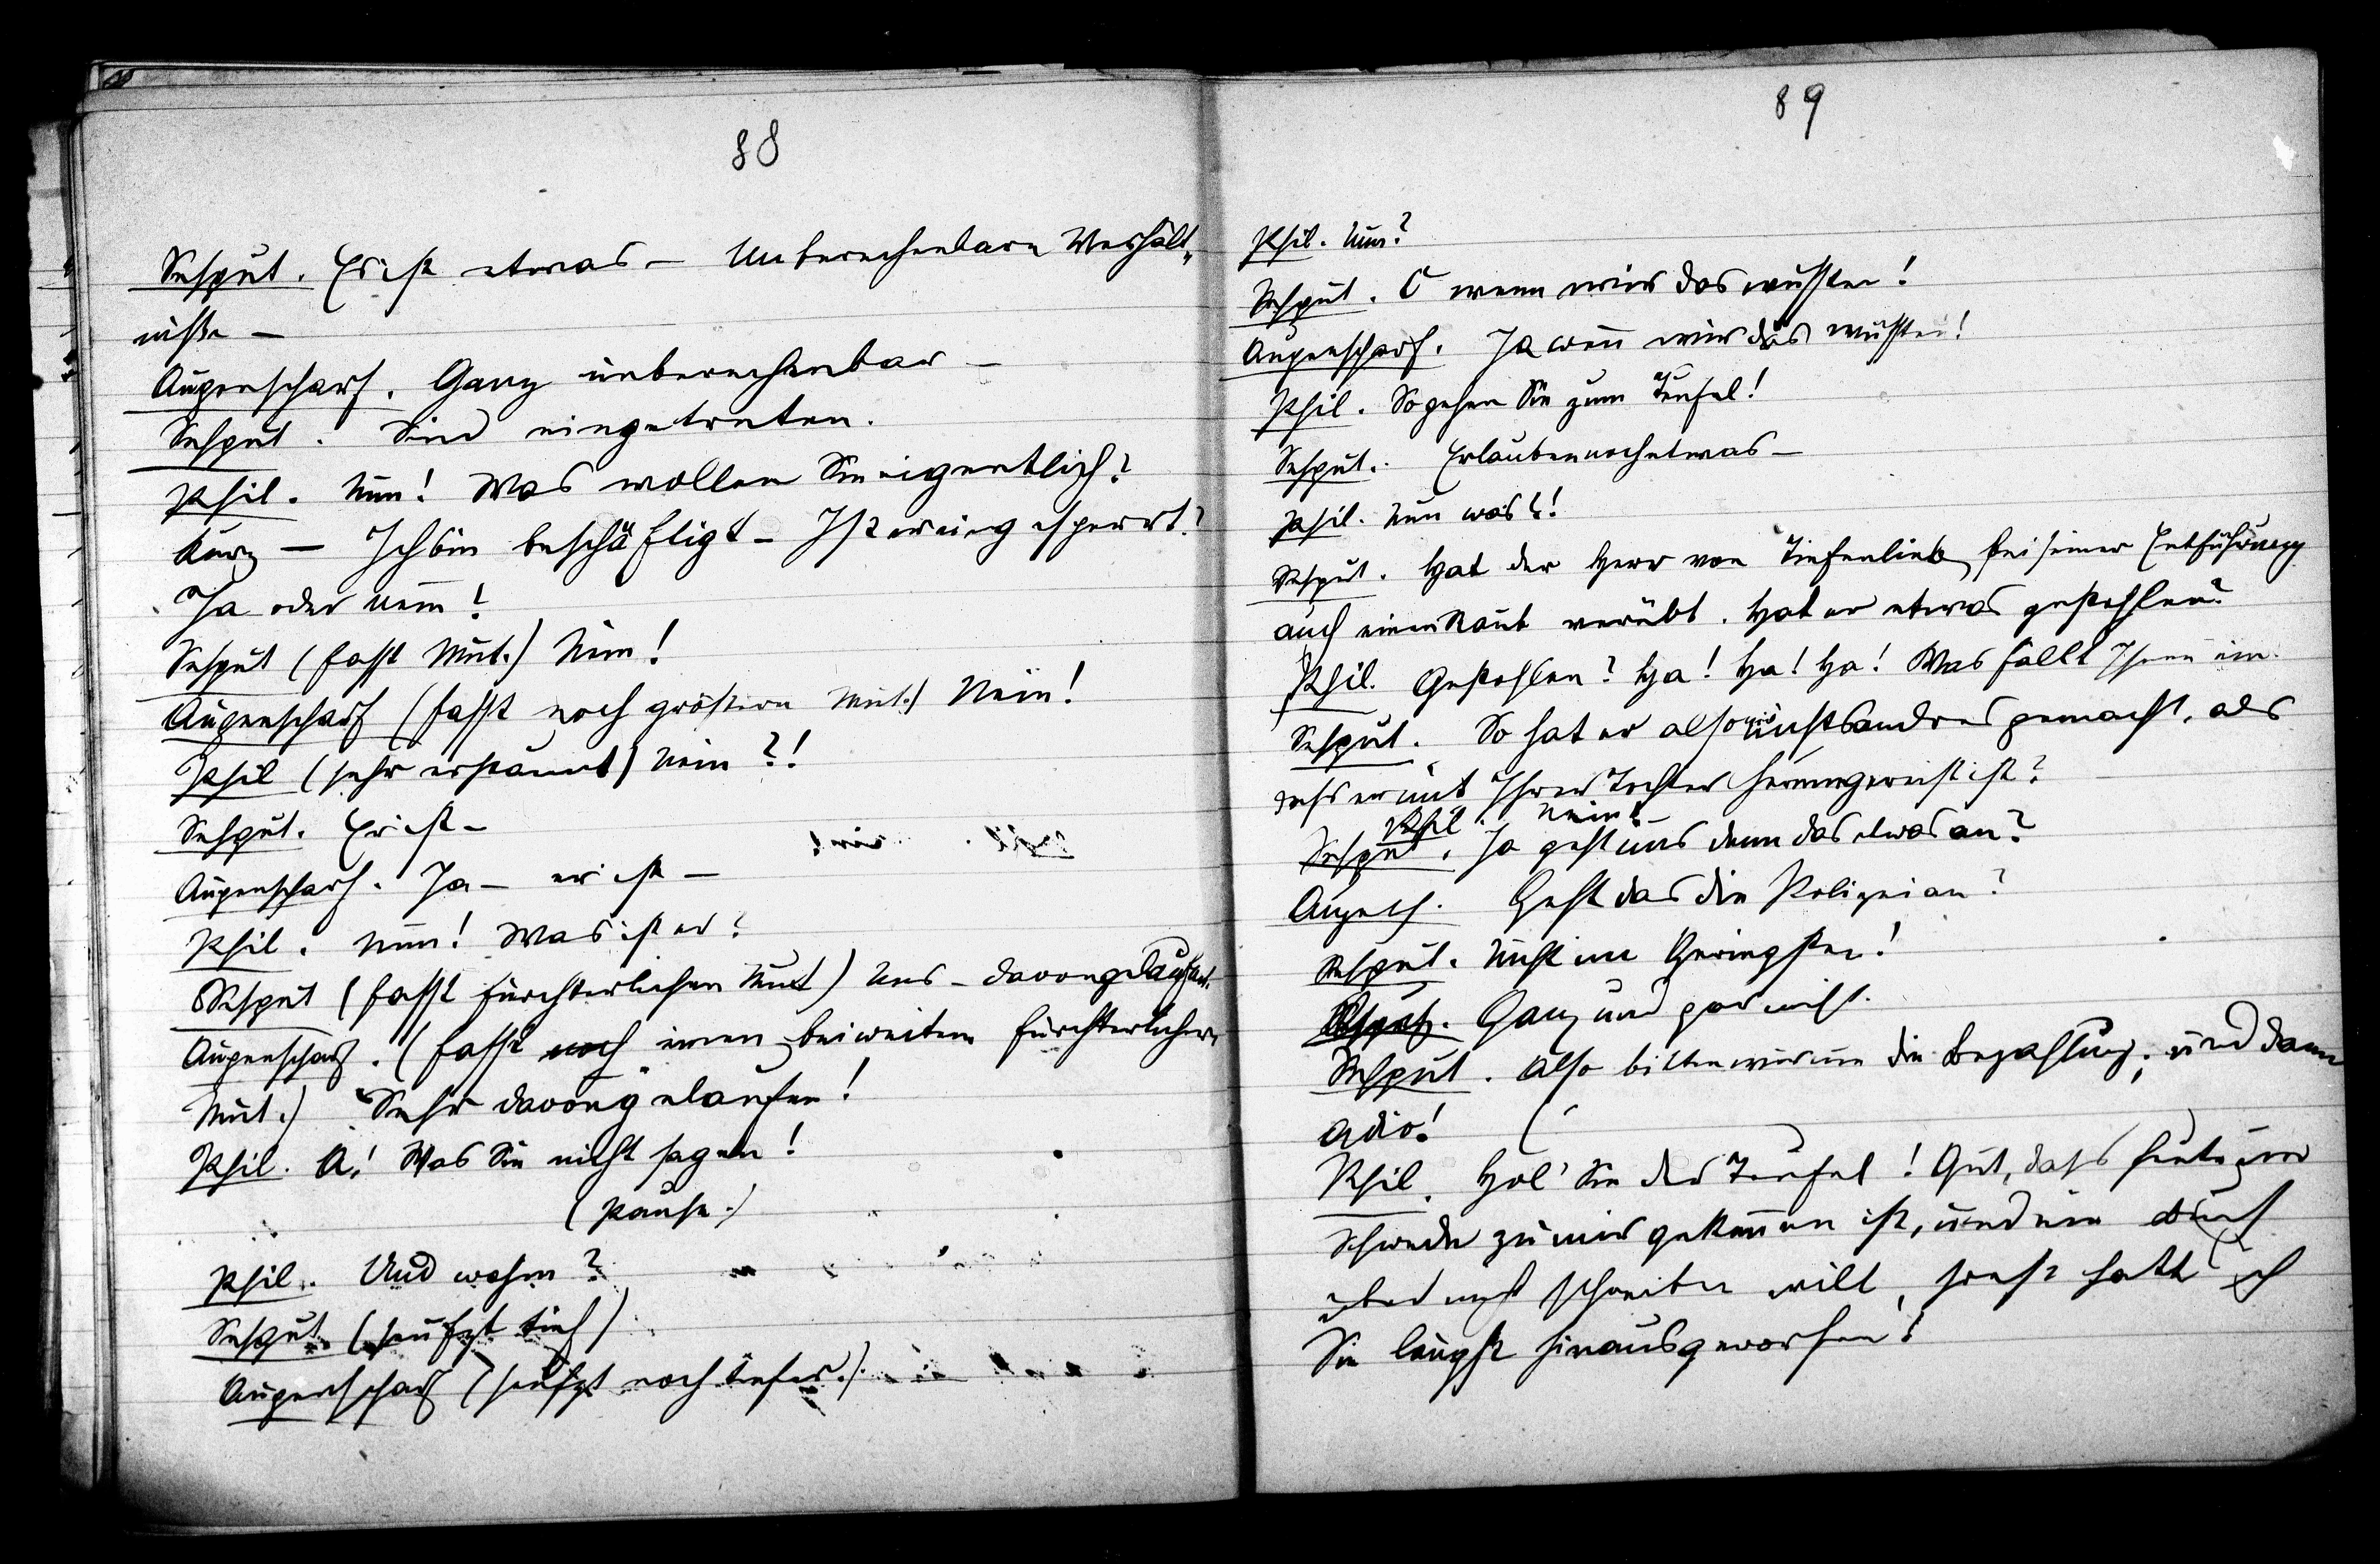 88
Sehgut. Er ist etwas – Unberechenbare Verhält„
niße –
Augenscharf. Ganz unberechenbar –
Sehgut. Sind eingetreten.
Phil. Nun! Was wollen Sie eigentlich?
Kurz – Ich bin beschäftigt – Ist er eingesperrt?
Ja oder nein!
Sehgut (fasst Mut.) Nein!
Augenscharf (fasst noch größeren Mut.) Nein!
Phil (sehr erstaunt) Nein?!
Sehgut. Er ist –
Augenscharf. Ja – er ist –
Phil. Nun! Was ist er?
Sehgut (fasst fürchterlichen Mut) Uns – davongelaufen.
Augenscharf. (fasst noch einen bei weitem fürchterlichern
Mut.) Sehr davongelaufen!
Phil. A! Was Sie nicht sagen!
(Pause.)
Phil. Und wohin?
Sehgut (seufzt tief)
Augenscharf (seufzt noch tiefer.)
89
Phil. Nun?
Sehgut. O wenn wir das wussten!
Augenscharf. Ja wenn wir das wussten!
Phil. So gehen Sie zum Teufel!
Sehgut. Erlauben noch etwas –
Phil. Nun was?!
Sehgut. Hat der Herr von Tiefenlieb bei seiner Entführung
auch einen Raub verübt. Hat er etwas gestohlen?
Phil. Gestohlen? Ha! Ha! Ha! Was fällt Ihnen ein.
Sehgut. So hat er also nichts andres gemacht, als
dass er mit Ihrer Tochter herumgereist ist?
Phil. Nein!
Sehgut. Ja geht uns denn das etwas an?
Augsch. Geht das die Polizei an?
Sehgut. Nicht im Geringsten!
Ganz und gar nicht.
Sehgut. Also bitten wir um die Bezahlung, und dann
adio!
Phil. Hol' Sie der Teufel! Gut, dass heute
Schwede zu mir gekommen ist, und ein Buch
schreiben will, sonst hätt' ich
Sie längst hinausgeworfen!